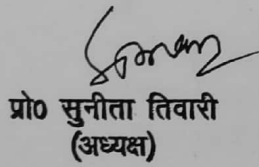 प्रो0 सुनीता तिवारी
(अध्यक्ष)